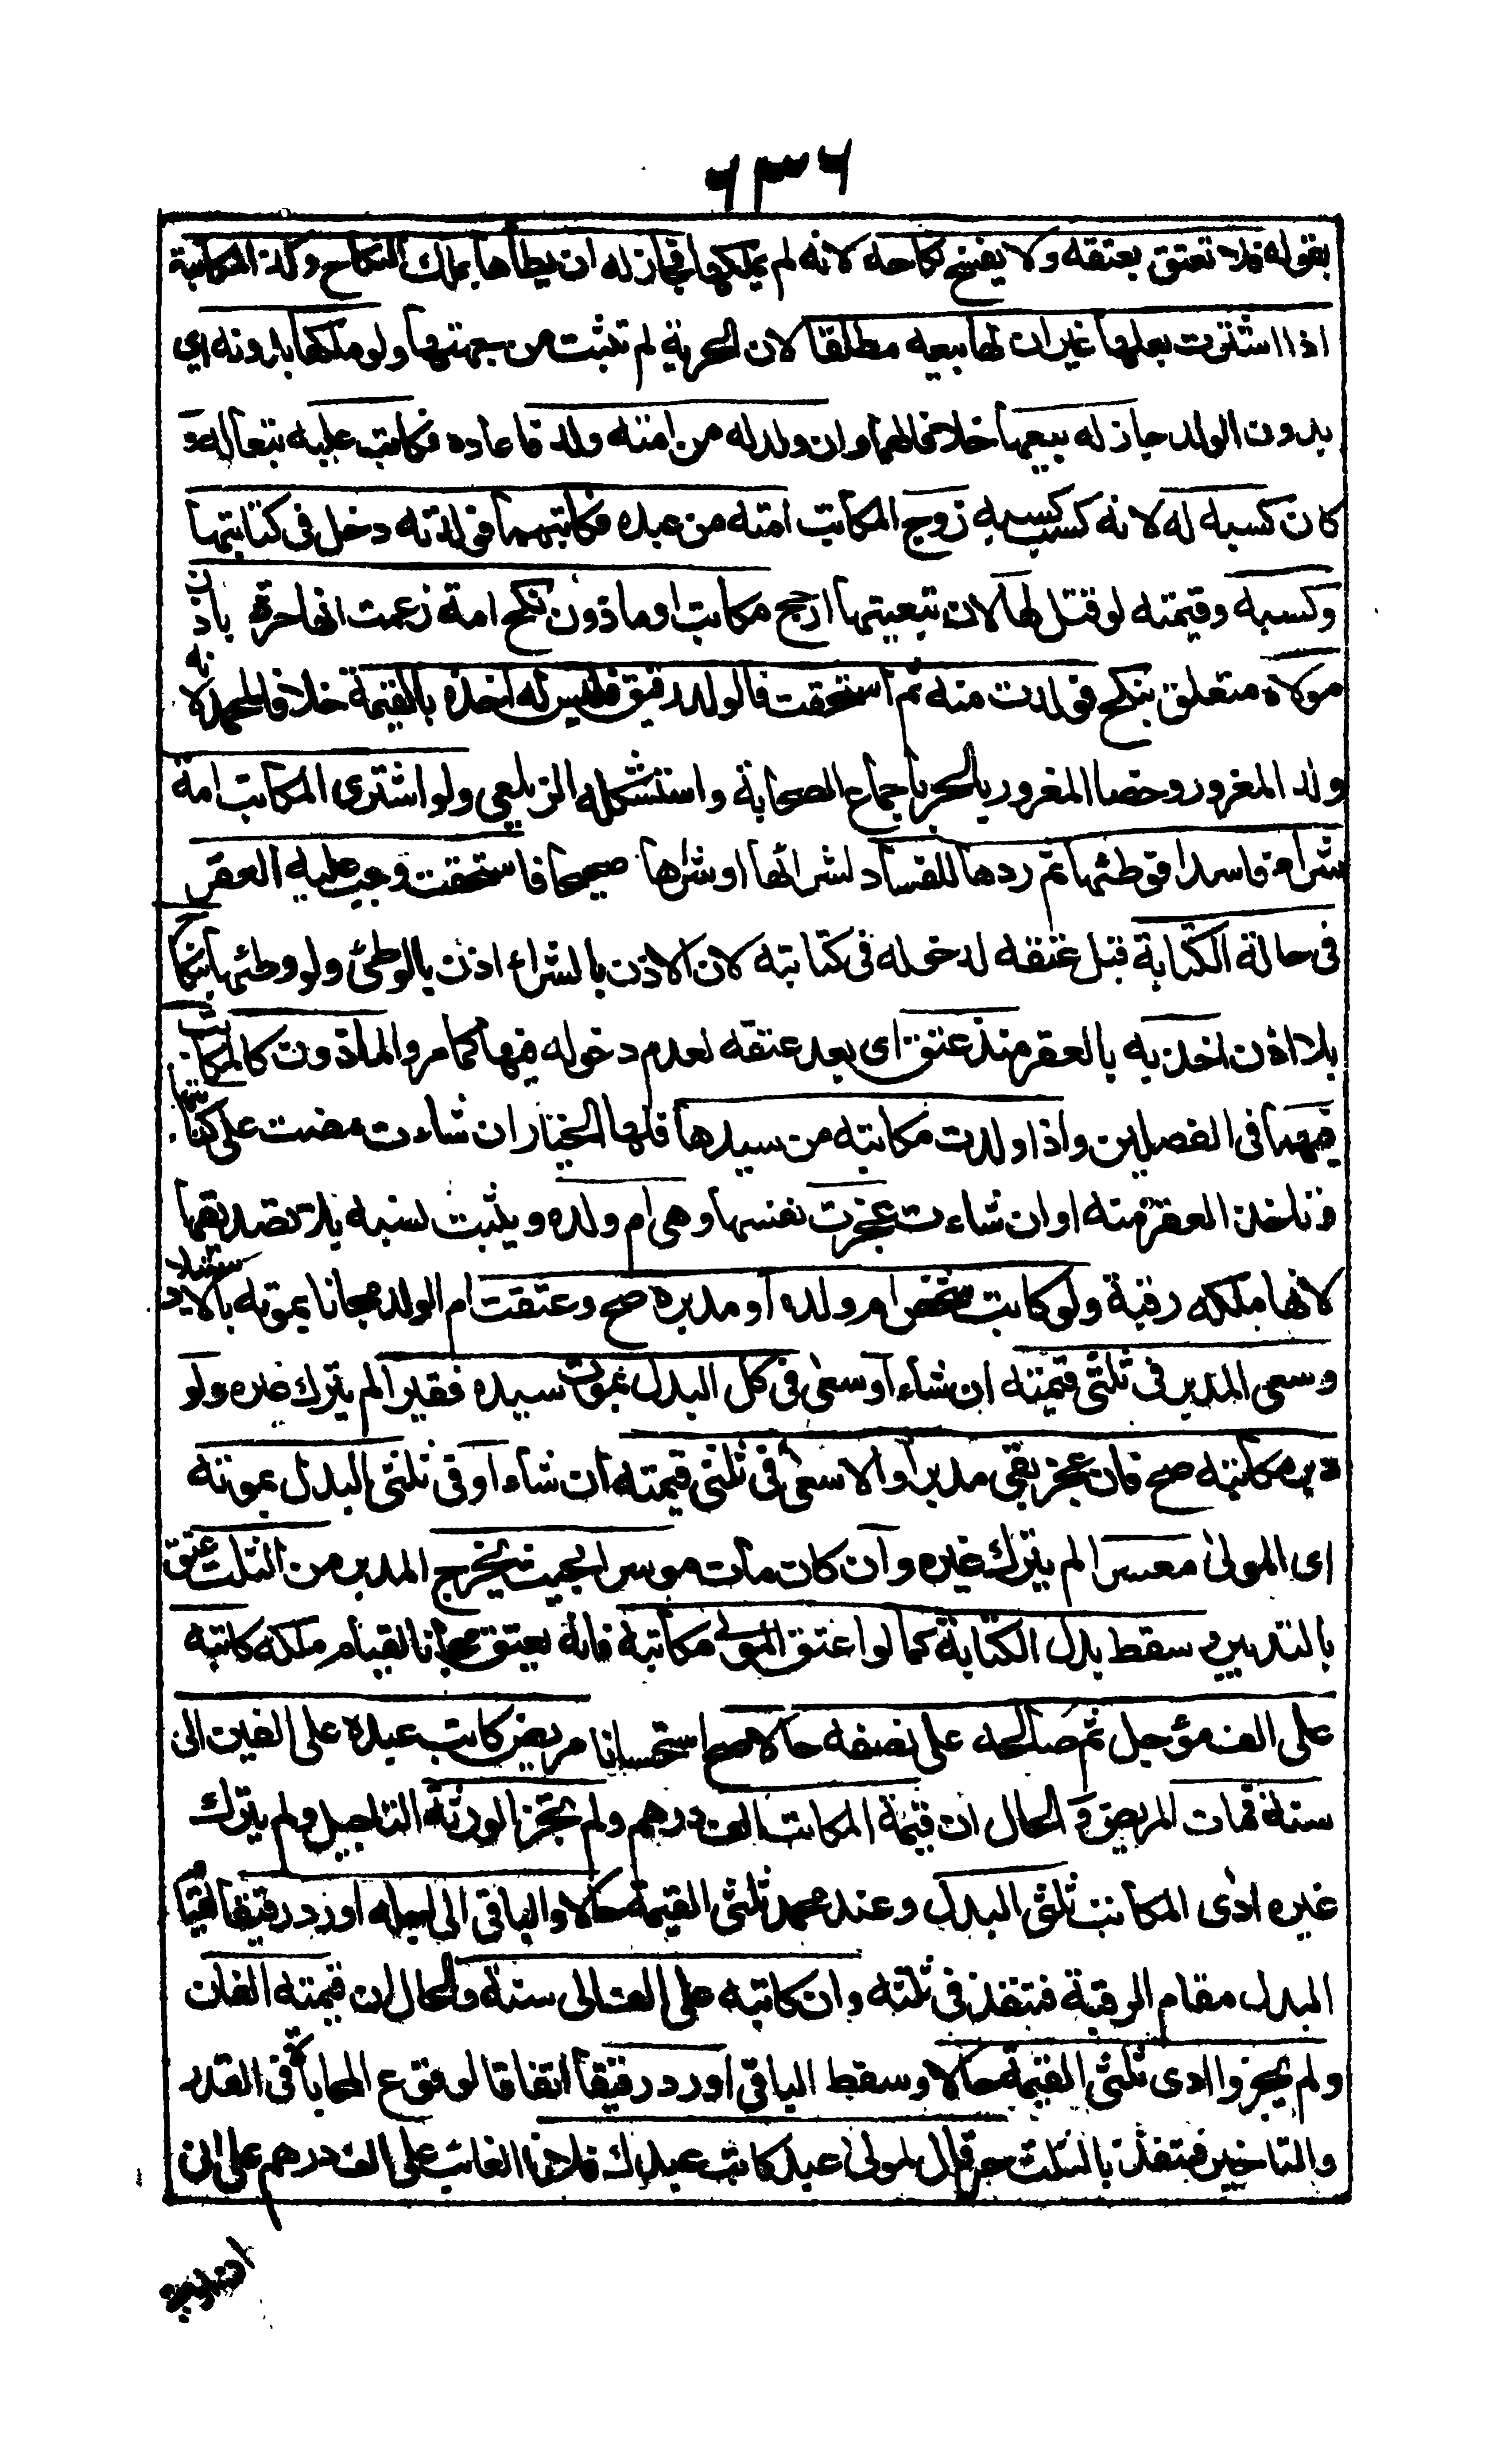 ٦٣٦
بقوله فلا تعتق بعتقه ولا يفسخ نكاحه لانه لم يملكها فجاز له ان يطأها بملك النكاح وكذا المكاتبة
اذا اشترت بعلها غير ان لها بيعه مطلقا لان الحرية لم تثبت من جهتها ولو ملكها بدونه اي
بدون الولد جاز له بيعها خلافا لهما وان ولد له من امته ولد فادعاه فكاتب عليه تبعا له و
كان كسبه له لانه كسب كسبه زوج المكاتب امته من عبده فكاتبهما فولدت له دخل في كتابتها
وكسبه وقيمته لو قتل لها لان تبعيتها ارجح مكاتب او ماذون نكح امة زعمت انها حرة باذن
مولاه متعلق بنكح فولدت منه ثم استحقت فالولد رقيق فليس له اخذه بالقيمة خلافا لمحمد لانه
ولد المغرور وخصا المغرور بالحر باجماع الصحابة واستشكله الزيلعي ولو اشترى المكاتب امة
شراء فاسدا فوطئها ثم ردها للفساد لشرائها او شراها صحيحا فاستحقت وجب عليه العقر
في حالة الكتابة قبل عتقه لدخوله في كتابته لان الاذن بالشراء اذن بالوطئ ولو وطئها بنكاح
بلا اذن اخذ به بالعقر منذ عتق اى بعد عتقه لعدم دخوله فيها كما مر والماذون كالمكاتب
فيهما في الفصلين واذا ولدت مكاتبه من سيدها فلها الخيار ان شاءت مضت على كتابتها
وتاخذ العقر منه او ان شاءت عجزت نفسها وهى ام ولده ويثبت نسبه بلا تصديقها
لانها ملكه رقبة ولو كاتب شخص ام ولده او مدبره صح وعتقت ام الولد مجانا بموته بالاستيلاد
وسعى المدبر في ثلثي قيمته ان شاء او سعى في كل البدل بموت سيده فقيرا لم يترك غيره ولو
دبر مكاتبه صح فان عجز بقي مدبرا والا سعى في ثلثي قيمته ان شاء او في ثلثي البدل بموته
اى المولى معسرا لم يترك غيره وان كان مات موسرا بحيث يخرج المدبر من الثلث عتق
بالتدبير وسقط بدل الكتابة كما لو اعتق المولى مكاتبه فانه يعتق مجانا لقيام ملكه كاتبه
على الف مؤجل ثم صالحه على نصفه حالا صح استحسانا مريض كاتب عبده على الفين الى
سنة فمات المريض و الحال ان قيمة المكاتب الف درهم ولم تجز الورثة التاجيل ولم يترك
غيره ادى المكاتب ثلثي البدل وعند محمد ثلثي القيمة حالا والباقي الى اجله او رد رقيقا لقيام
البدل مقام الرقبة فتنفذ في ثلثه وان كاتبه على الف الى سنة والحال ان قيمته الفان
ولم يجيزوا ادى ثلثي القيمة حالا وسقط الباقي او رد رقيقا اتفاقا لوقوع المحاباة في القدر
والتاخير فتنفذ بالثلث حر قال لمولى عبد كاتب عبدك فلانا الغائب على الف درهم على ان